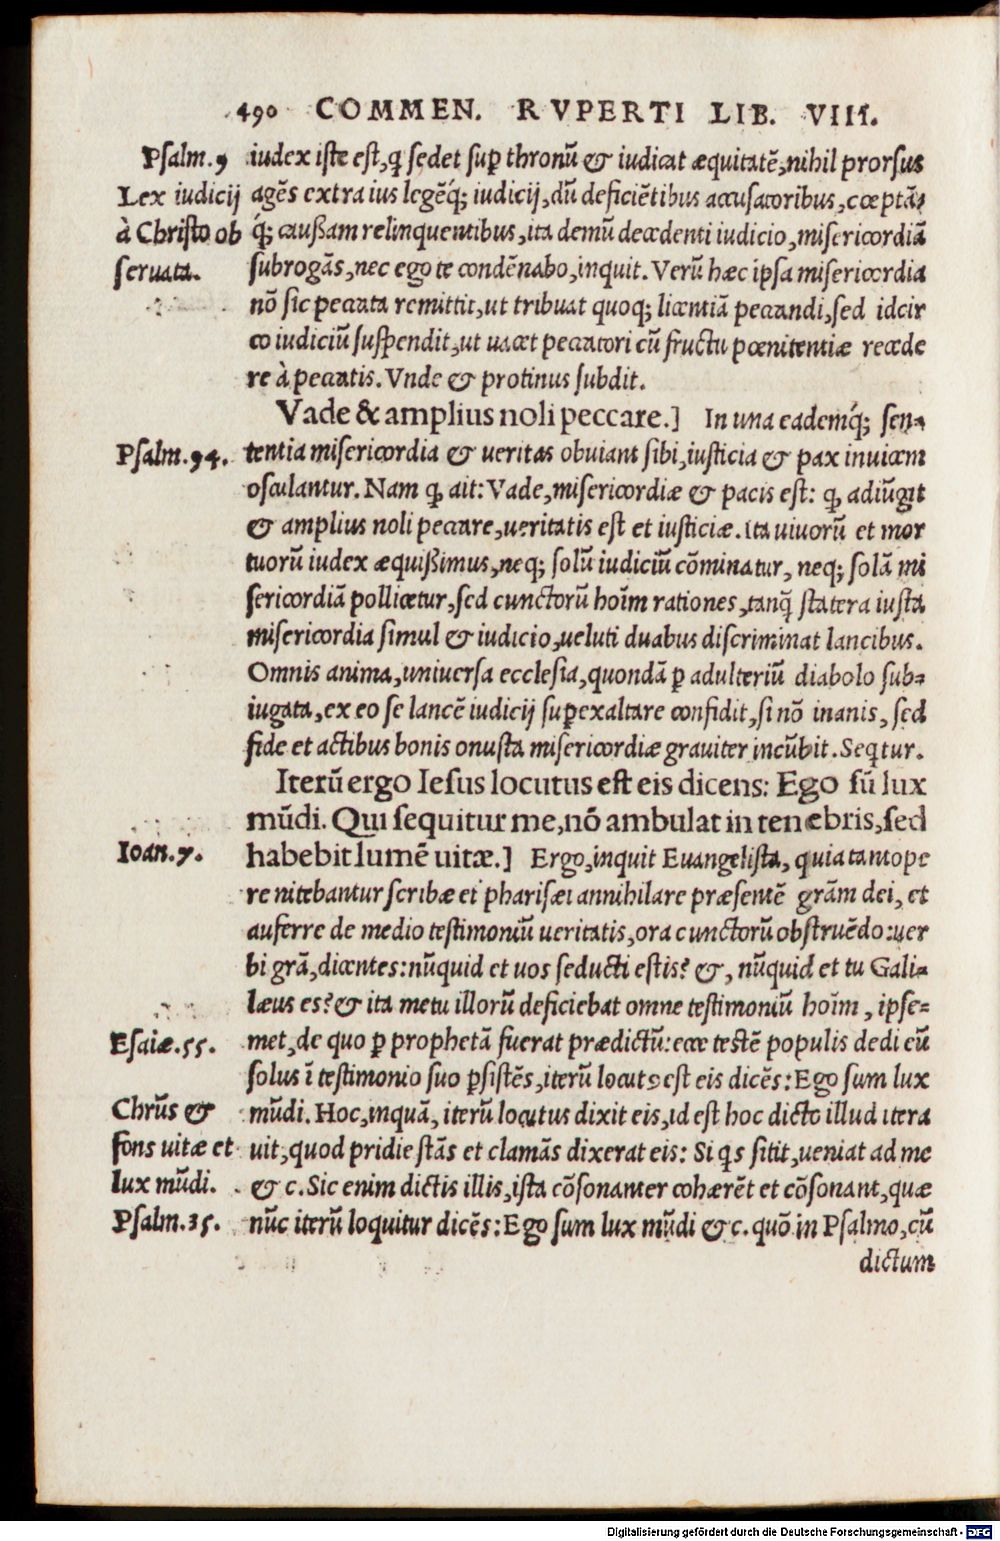 490 COMMEN. RVPERTI LIB. VIII.
Psalm. 9 iudex iste est, ꝗ sedet suꝑ thronũ & iudicat æquitatẽ, nihil prorsus
Lex iudicij agẽs extra ius legẽq; iudicij, dũ deficiẽtibus accusatoribus, cœptã/
à Christo ob q́; caußam relinquentibus, ita demũ decedenti iudicio, misericordiã
seruata. subrogãs, nec ego te condẽnabo, inquit. Verũ hæc ipsa misericordia
nõ sic peccata remittit, ut tribuat quoq; licentiã peccandi, sed idcir
co iudiciũ suspendit, ut uacet peccatori cũ fructu pœnitentiæ recede
re à peccatis. Vnde & protinus subdit.
Vade & amplius noli peccare.] In una eademq́; sen-
Psalm. 94. tentia misericordia & ueritas obuiant sibi, iusticia & pax inuicem
osculantur. Nam ꝙ ait: Vade, misericordiæ & pacis est: ꝙ adiũgit
& amplius noli peccare, ueritatis est et iusticiæ. Ita uiuorũ et mor
tuorũ iudex æquißimus, neq; solũ iudiciũ cõminatur, neq; solã mi
sericordiã pollicetur, sed cunctorũ hoĩm rationes, tanq̃ statera iusta
misericordia simul & iudicio, ueluti duabus discriminat lancibus.
Omnis anima, uniuersa ecclesia, quondã ꝑ adulteriũ diabolo sub-
iugata, ex eo se lancẽ iudicij suꝑexaltare confidit, si nõ inanis, sed
fide et actibus bonis onusta misericordiæ grauiter incũbit. Seqꝭtur.
Iterũ ergo Iesus locutus est eis dicens: Ego sũ lux
mũdi. Qui sequitur me, nõ ambulat in tenebris, sed
Ioan. 7. habebit lumẽ uitæ.] Ergo, inquit Euangelista, quia tantope
re nitebantur scribæ et pharisæi annihilare præsentẽ grãm dei, et
auferre de medio testimoniũ ueritatis, ora cunctorũ obstruẽdo: uer
bi grã, dicentes: nũquid et uos seducti estis? &, nũquid et tu Gali-
læus es? & ita metu illorũ deficiebat omne testimoniũ hoĩm, ipse-
Esaiæ. 55. met, de quo ꝑ prophetã fuerat prædictũ: ecce testẽ populis dedi eũ
solus ĩ testimonio suo ꝑsistẽs, iterũ locutꝰ est eis dicẽs: Ego sum lux
Chrũs & mũdi. Hoc, inquã, iterũ locutus dixit eis, id est hoc dicto illud itera
fons uitæ et uit, quod pridie stãs et clamãs dixerat eis: Si qꝭs sitit, ueniat ad me
lux mũdi. & c. Sic enim dictis illis, ista cõsonanter cohærẽt et cõsonant, quæ
Psalm. 35. nũc iterũ loquitur dicẽs: Ego sum lux mũdi & c. quõ in Psalmo, cũ
dictum
Digitalisierung gefördert durch die Deutsche Forschungsgemeinschaft - DFG